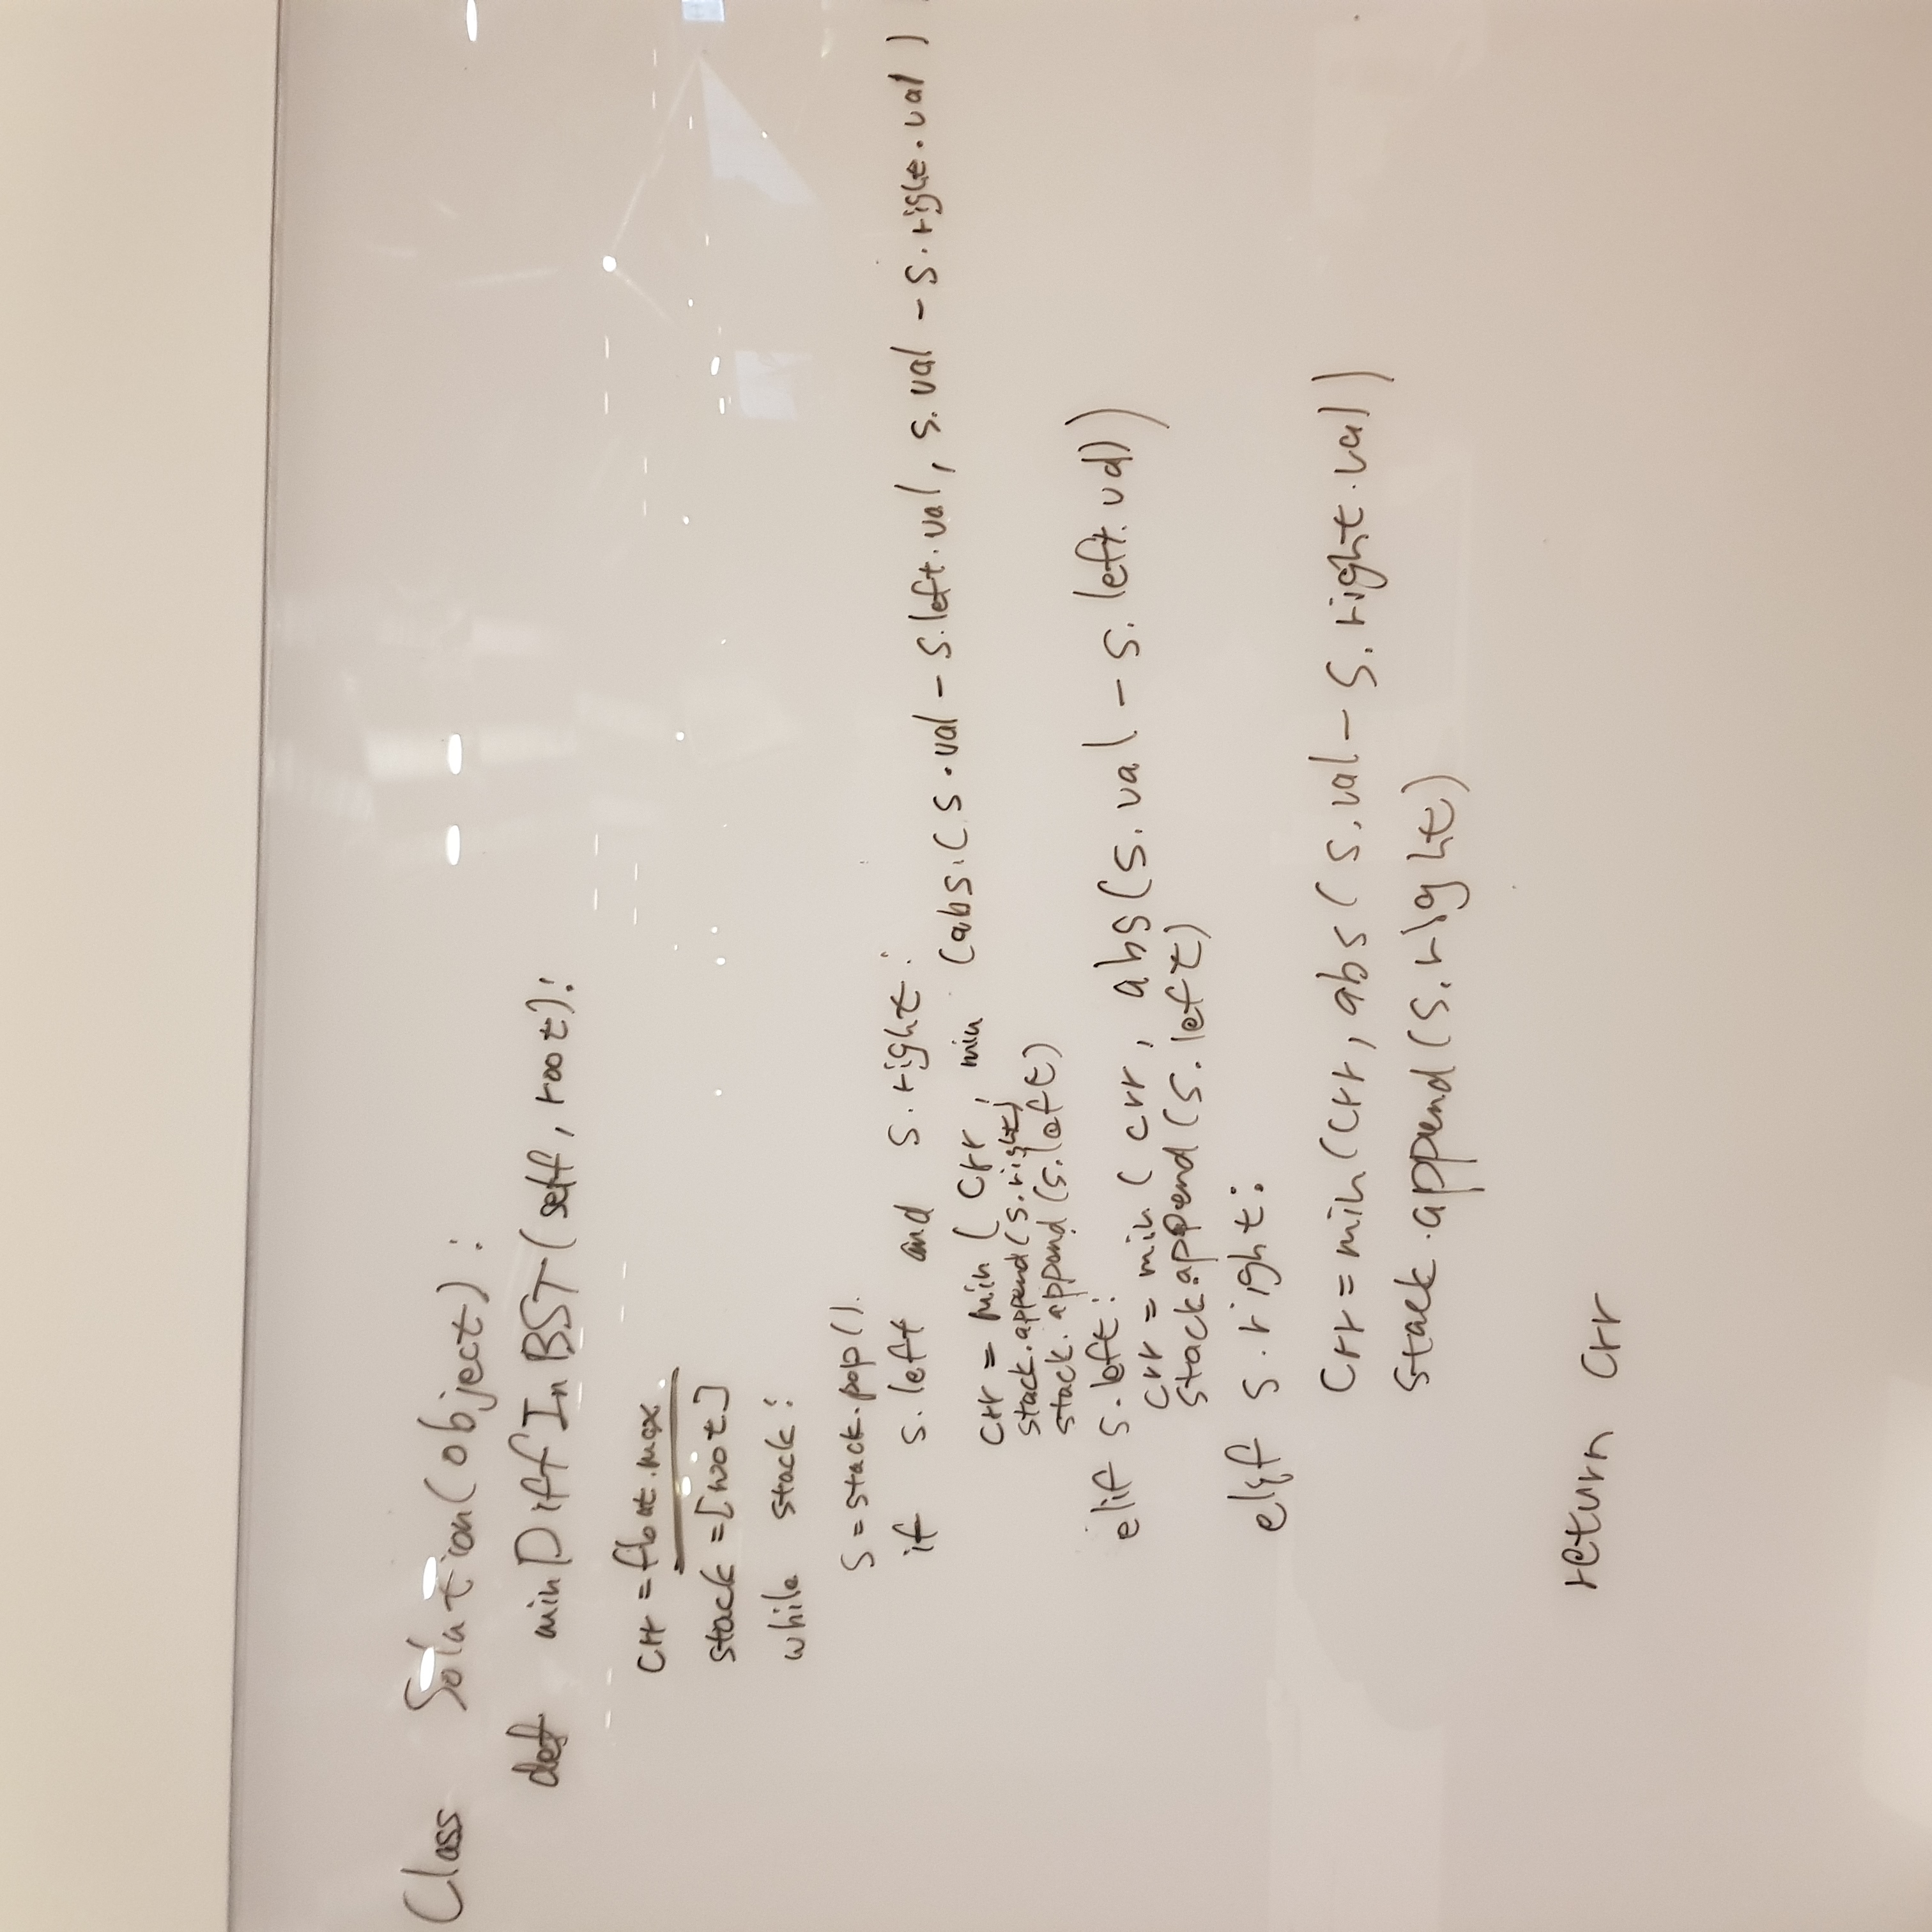 Class Solution(object):
def minDiffInBST(self, root):
crr = float.max.
stack = [root]
while stack:
s = stack.pop().
if s.left and s.right:
crr = min ( crr, min (abs.( s.val - s.left.val, s.val - s.right.val )
stack.append(s.right)
stack.append(s.left)
elif s.left:
crr = min ( crr, abs(s.val - s.left.val))
stack.append(s.left)
elif s.right:
crr = min(crr, abs(s.val - s.right.val))
stack.append(s.right)
return crr